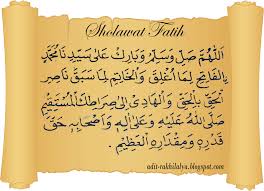 Sholawat Fatih
اَللّٰهُمَّ صَلِّ وَسَلِّمْ وَبَارِكْ عَلَى سَيِّدِنَا مُحَمَّدٍ
اَلْفَاتِحِ لِمَا أُغْلِقَ وَالْخَاتِمِ لِمَا سَبَقَ نَاصِرِ
الْحَقِّ بِالْحَقِّ وَالْهَادِى إِلَى صِرَاطِكَ الْمُسْتَقِيْمِ
صَلَّى اللهُ عَلَيْهِ وَعَلَى اٰلِهِ وَاَصْحَابِهِ حَقَّ
قَدْرِهِ وَمِقْدَارِهِ الْعَظِيْمِ.
adit-rakhilalya.blogspot.com